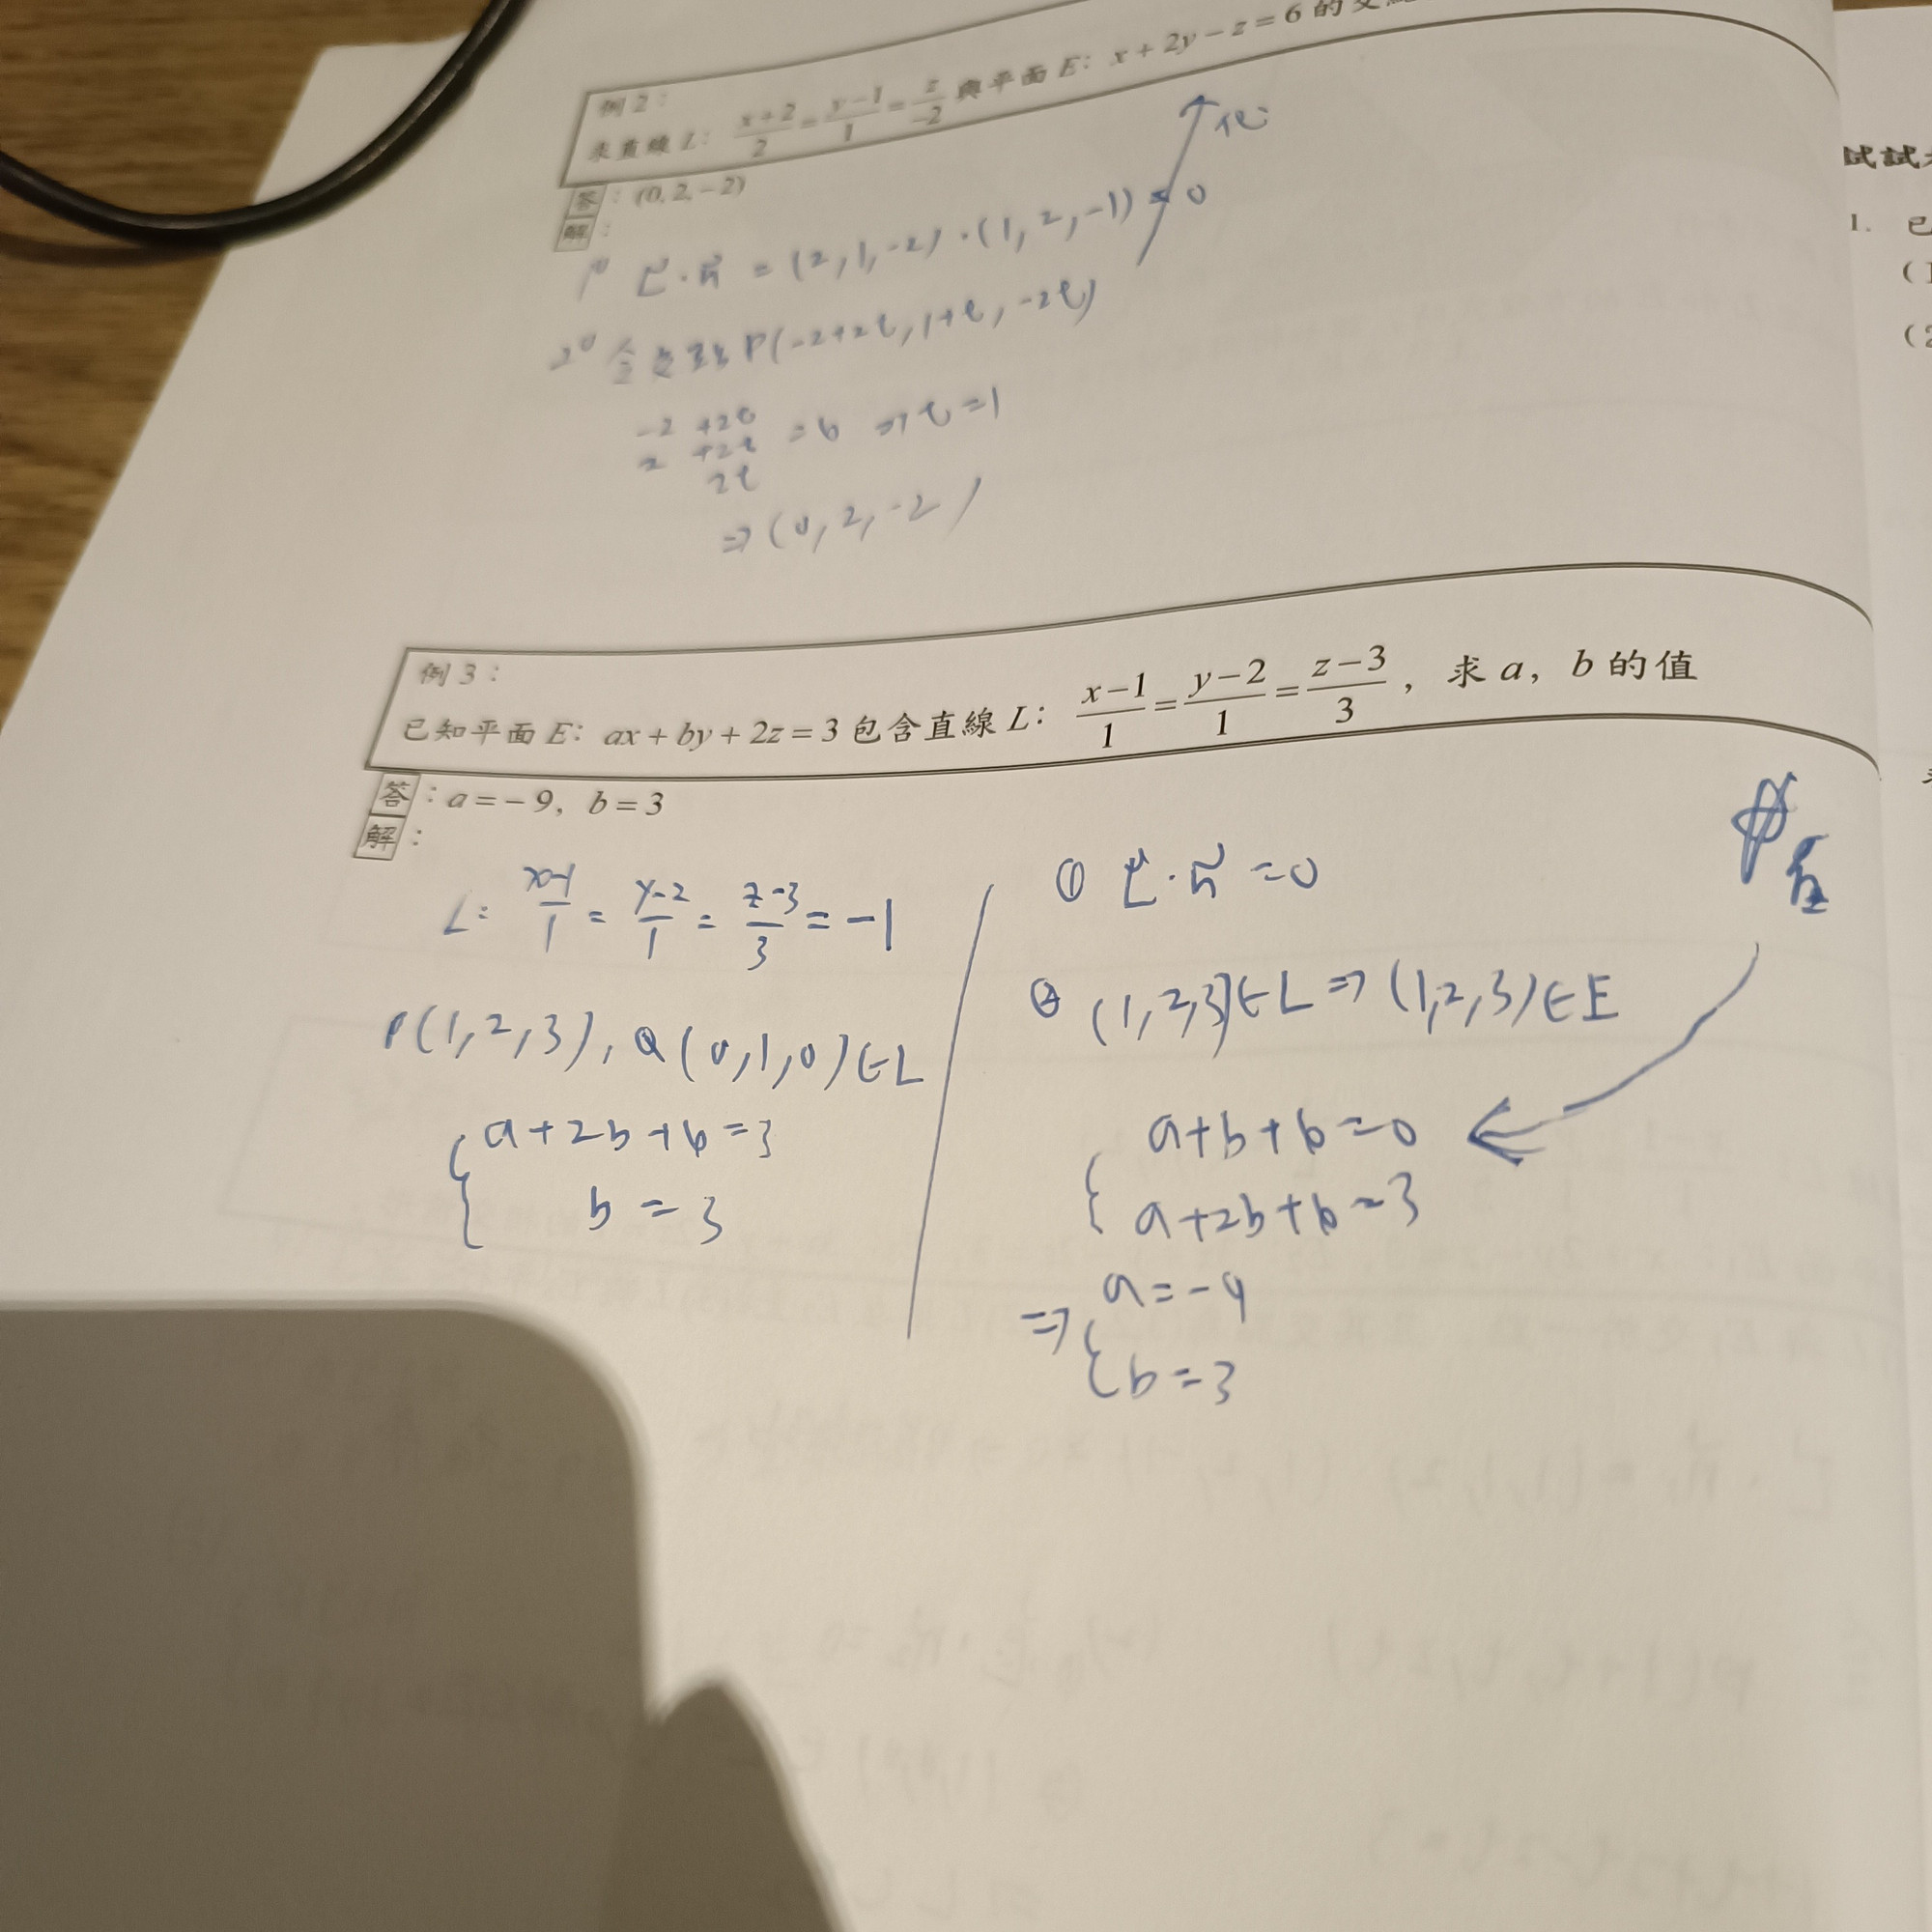 例 2：
求直線 L： (x+2)/2 = (y−1)/1 = z/−2 與平面 E： x + 2y − z = 6 的交
答：(0, 2, −2)
解：
1° L⃗ · n⃗ = (2, 1, −2) · (1, 2, −1) ≠ 0
2° 令交點 P(−2+2t, 1+t, −2t)
−2 +2t
2 +2t = 6 ⇒ t = 1
2t
⇒ (0, 2, −2)
例 3：
已知平面 E： ax + by + 2z = 3 包含直線 L： (x−1)/1 = (y−2)/1 = (z−3)/3 ， 求 a， b 的值
答：a = − 9， b = 3
解：
L: (x−1)/1 = (y−2)/1 = (z−3)/3 = −1
P(1, 2, 3), Q(0, 1, 0) ∈ L
{ a + 2b + 6 = 3
b = 3
① L⃗ · n⃗ = 0
② (1, 2, 3) ∈ L ⇒ (1, 2, 3) ∈ E
{ a + b + 6 = 0
a + 2b + 6 = 3
⇒ { a = −9
b = 3
試試
1. 已
(1
(2